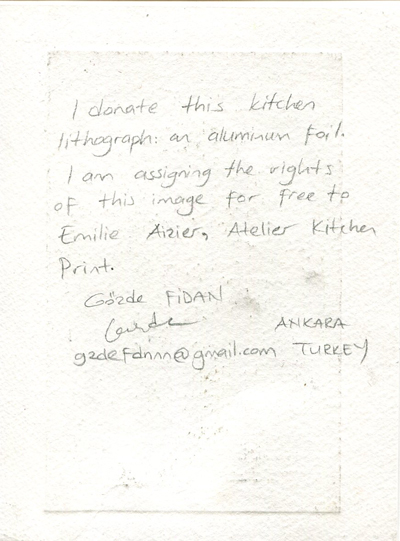 I donate this kitchen
lithograph: an aluminum foil.
I am assigning the rights
of this image for free to
Emilie Aizier, Atelier Kitchen
Print.
Gözde FiDAN
ANKARA
TURKEY